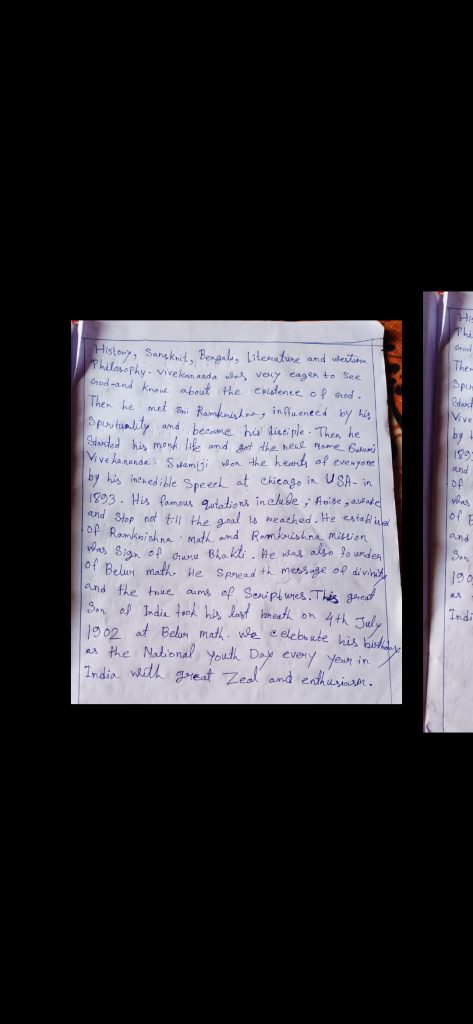 History, Sanskrit, Bengali, Literature and western
Philosophy. Vivekananda was very eager to See
God and know about the existence of God.
Then he met Sri Ramkrishna, influenced by his
Spirituality and became his disciple. Then he
Started his monk life and got the new name Swami
Vivekananda. Swamiji won the hearts of everyone
by his incredible Speech at chicago in USA- in
1893. His famous quotations include ; Arise, awake
and Stop not till the goal is reached. He established
of Ramkrishna math and Ramkrishna mission
was Sign of Guru Bhakti. He was also founder
of Belur math. He Spread th message of divinity
and the true aims of Scriptures. This great
Son of India took his last breath on 4th July
1902 at Belur math. We celebrate his birthday
as the National Youth Day every year in
India with great Zeal and enthusiasm.
His
Phi
God
Then
Spi
Start
Vive
by
189
and
of
was
of
and
Son
190
as
Indi